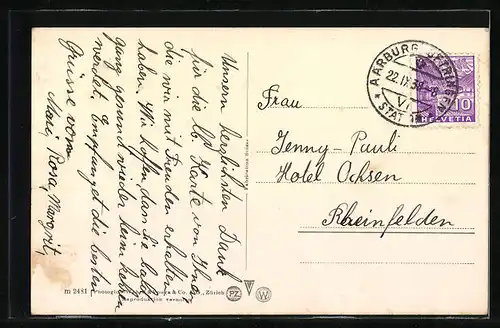 Unsern herzlichsten Dank
für die lb. Karte von Ihnen
die wir mit Freuden erhalten
haben. Wir hoffen, dass Sie bald
ganz gesund wieder heim kehren
werdet. Empfanget die besten
Grüsse von
Marie, Rosa, Margrit,
Frau
Jenny-Pauli
Hotel Ochsen
Rheinfelden
AARBURG
22.IX.36
VI
STAT
10
HELVETIA
m 2481
& Co. Zürich
Reproduction
PZ
W